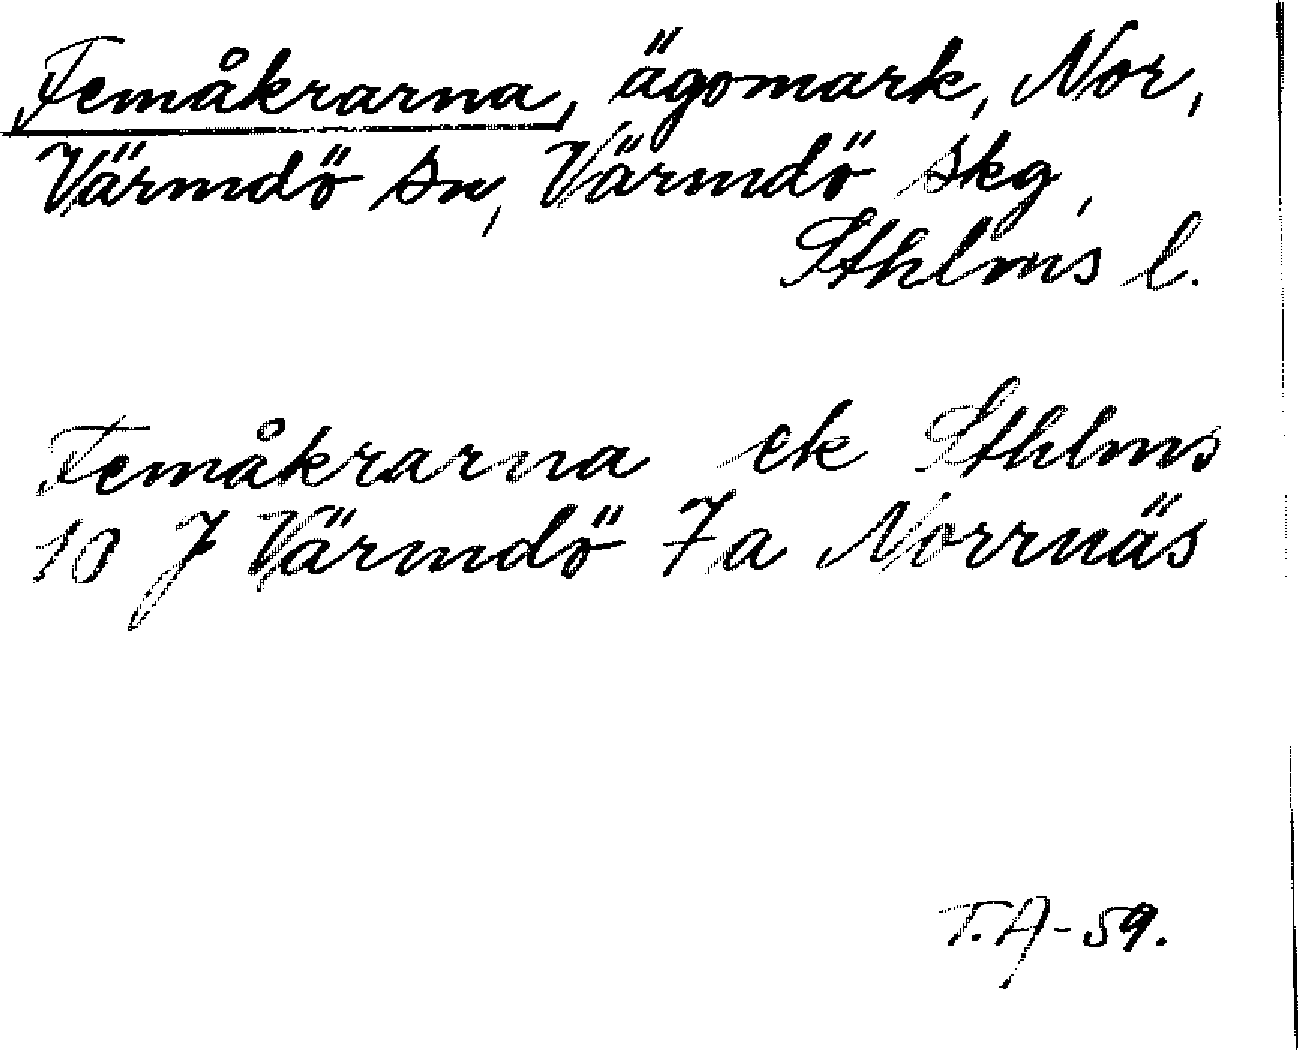 Femåkrarna, ägomark, Nor,
Värmdö sn, Värmdö skg,
Sthlms l.
Femåkrarna ek Sthlms
10 J Värmdö 7a Norrnäs
T.A-59.